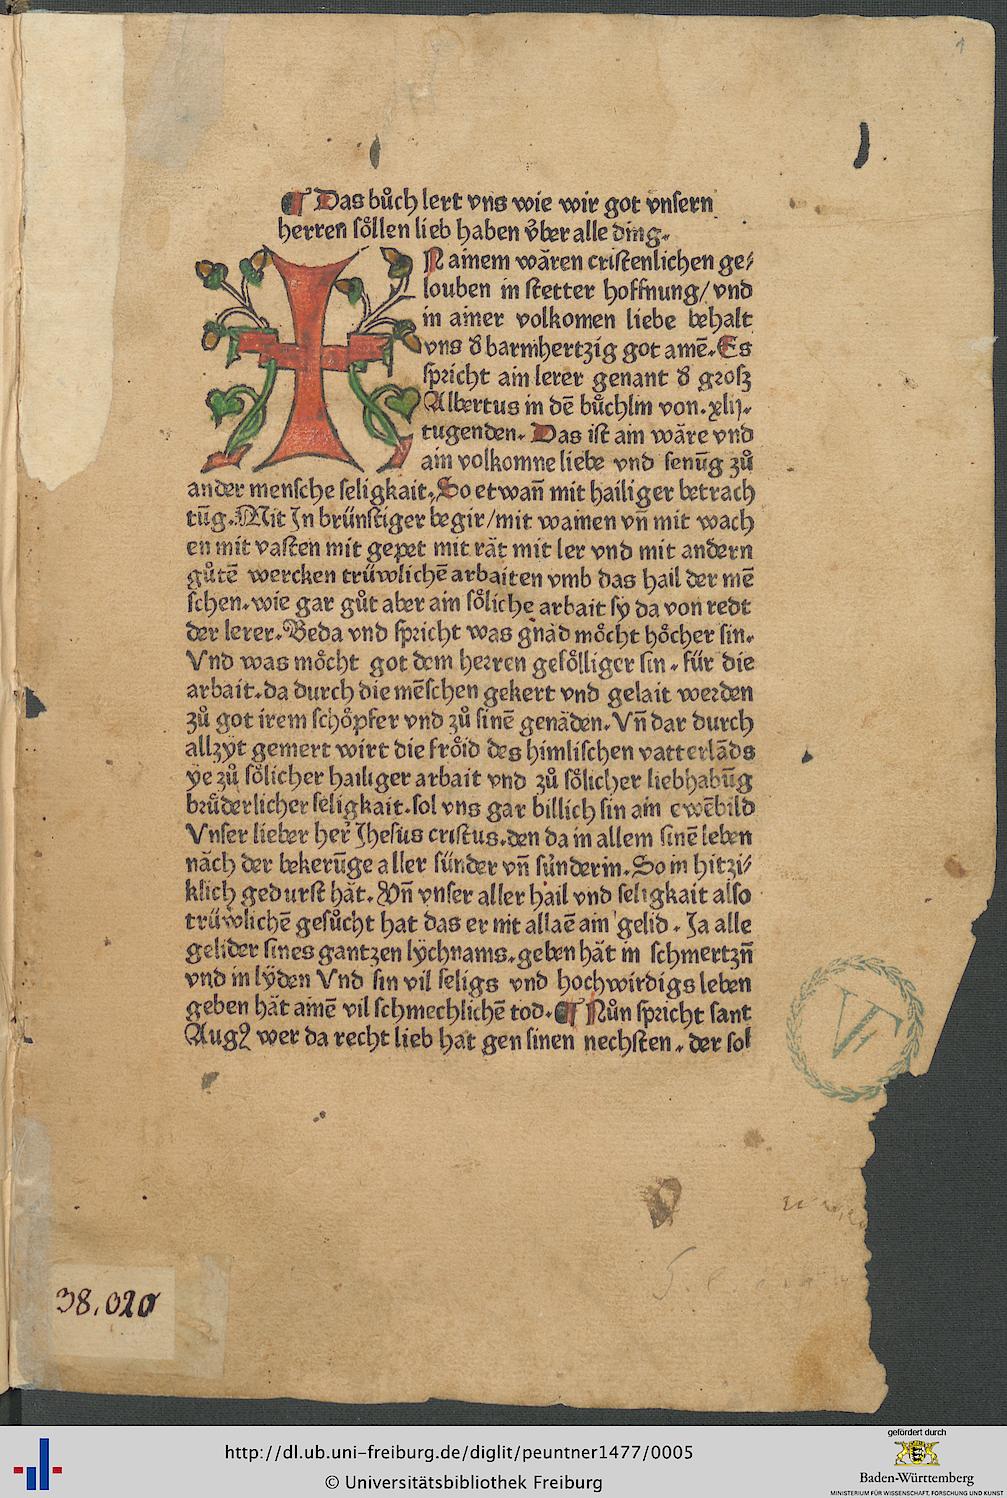 1
¶ Das bůch lert vns wie wir got vnsern
herren soͤllen lieb haben v̊ber alle ding.
IN ainem wāren cristenlichen ge⸗
louben in stetter hoffnung/ vnd
in ainer volkomen liebe behalt
vns đ barmhertzig got amē. Es
spricht ain lerer genant đ grosz
Albertus in dē bůchlin von. xlij.
tugenden. Das ist ain wāre vnd
ain volkomne liebe vnd senūg zů
ander mensche seligkait. So etwan̄ mit hailiger betrach
tūg. Mit In brünstiger begir/ mit wainen vn̄ mit wach
en mit vasten mit gepet mit rāt mit ler vnd mit andern
gůtē wercken trüwlichē arbaiten vmb das hail der mē
schen. wie gar gůt aber ain soͤliche arbait sy da von redt
der lerer. Beda vnd spricht was gnād moͤcht hoͤcher sin.
Vnd was moͤcht got dem herren gefoͤlliger sin. für die
arbait. da durch die mēschen gekert vnd gelait werden
zů got irem schoͤpfer vnd zů sinē genāden. Vn̄ dar durch
allzyt gemert wirt die froͤid des himlischen vatterlāds
ye zů soͤlicher hailiger arbait vnd zů soͤlicher liebhabūg
brůderlicher seligkait. sol vns gar billich sin ain ewēbild
Vnser lieber her̄ Jhesus cristus. den da in allem sinē leben
nāch der bekerūge aller sünder vn̄ sünderin. So in hitzi⸗
klich gedurst hāt. Vn̄ vnser aller hail vnd seligkait also
trüwlichē gesůcht hat das er nit allaē ain gelid. Ja alle
gelider sines gantzen lychnams. geben hāt in schmertzn̄
vnd in lyden Vnd sin vil seligs vnd hochwirdigs leben
geben hāt ainē vil schmechlichē tod. ¶ Nůn spricht sant
Augꝰ wer da recht lieb hat gen sinen nechsten. der sol
38.020
http://dl.ub.uni-freiburg.de/diglit/peuntner1477/0005
© Universitätsbibliothek Freiburg
gefördert durch
Baden-Württemberg
MINISTERIUM FÜR WISSENSCHAFT, FORSCHUNG UND KUNST